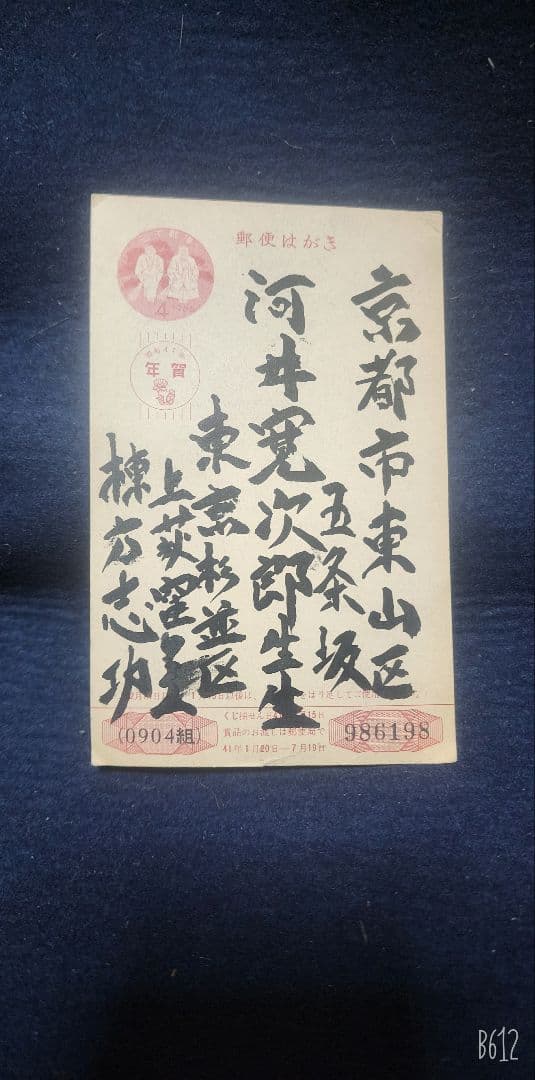 郵便はがき
4
年賀
京都市東山区
五条坂
河井寛次郎先生
東京杉並区
上荻窪
棟方志功
くじ抽せん
賞品のお渡しは郵便局で
41年1月20日—7月19日
(0904組)
986198
B612